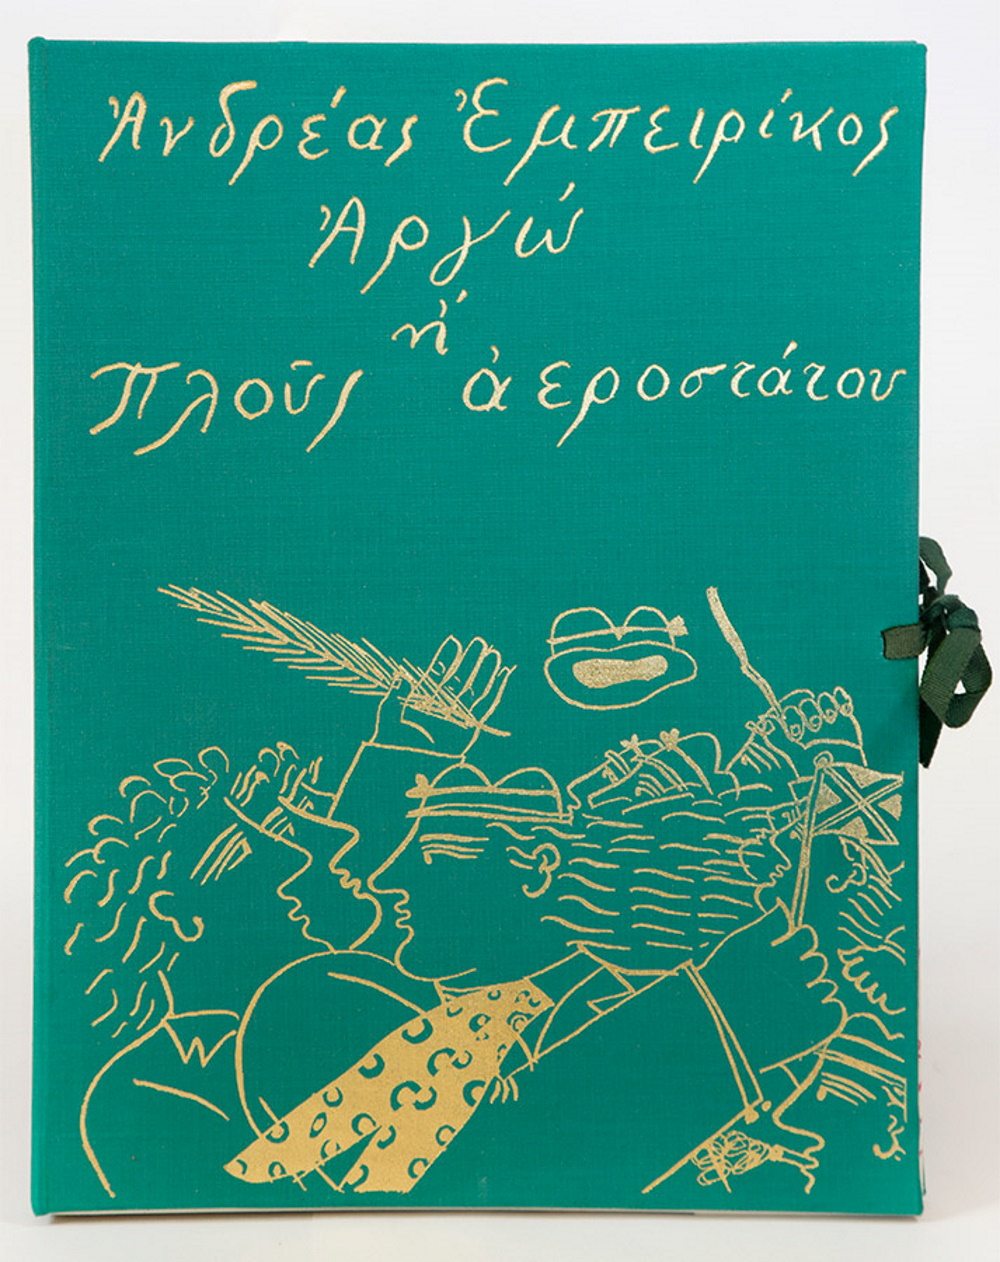 Ἀνδρέας Ἐμπειρίκος
Ἀργώ
ἤ
Πλοῦς ἀεροστάτου